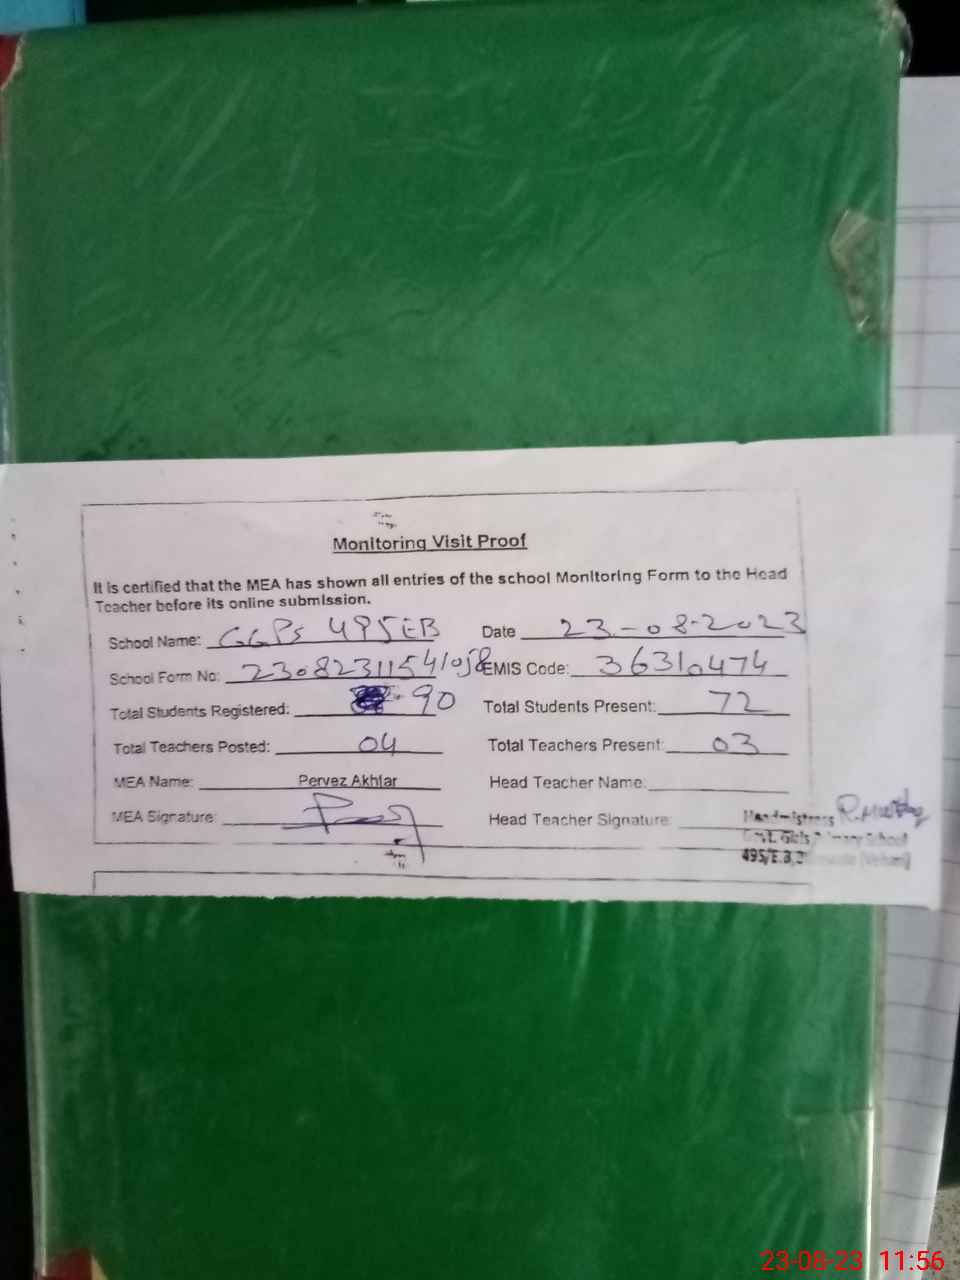 Monitoring Visit Proof
It is certified that the MEA has shown all entries of the school Monitoring Form to the Head
Teacher before its online submission.
School Name: GGPS 495EB Date 23-08-2023
School Form No: 23082311541058 EMIS Code: 36310474
Total Students Registered: 90 Total Students Present: 72
Total Teachers Posted: 04 Total Teachers Present: 03
MEA Name: Pervez Akhtar Head Teacher Name:
MEA Signature: Head Teacher Signature:
Headmistress
Govt. Girls Primary School
495/E.B, (Vehari)
23-08-23 11:56